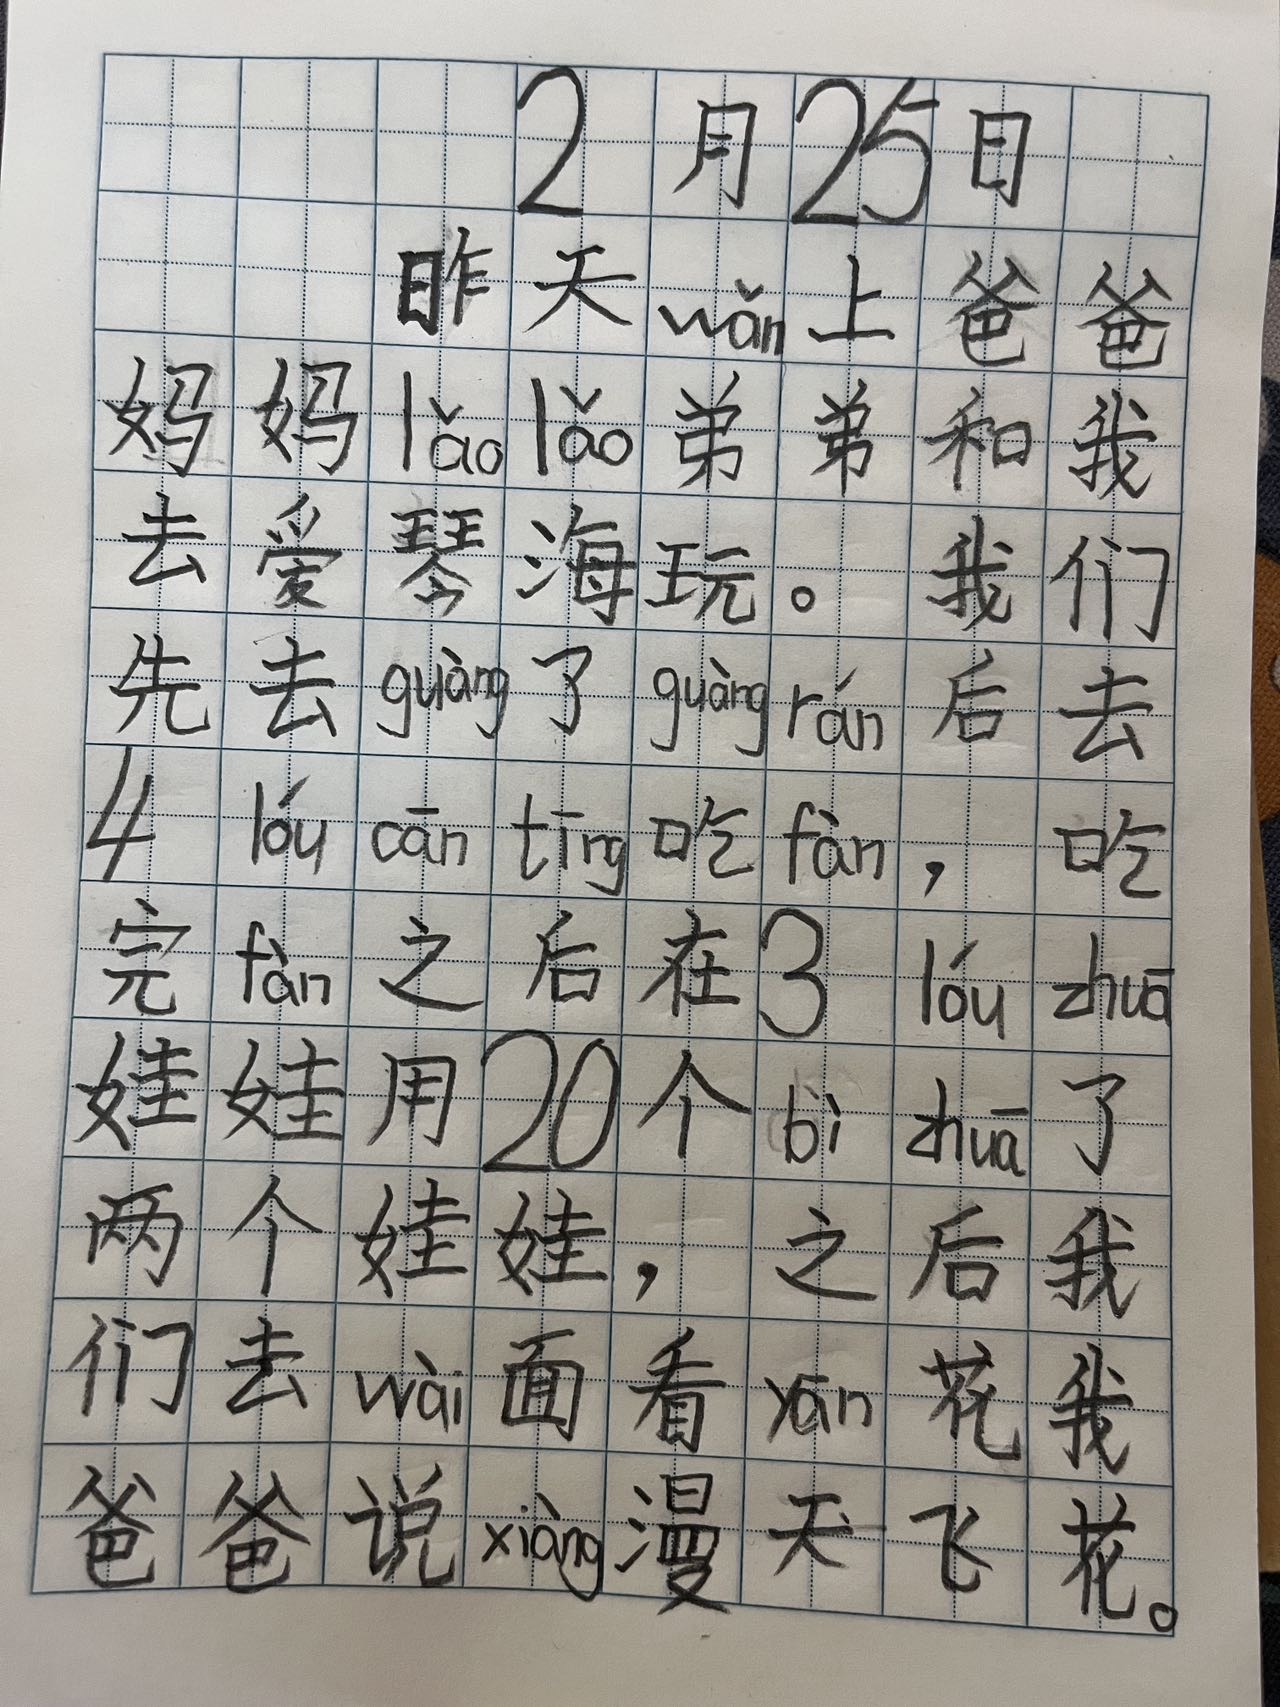 2月25日
昨天wǎn上爸爸
妈妈lǎolǎo弟弟和我
去爱琴海玩。我们
先去guàng了guàngrán后去
4lóucāntīng吃fàn，吃
完fàn之后在3lóuzhuā
娃娃用20个bìzhuā了
两个娃娃，之后我
们去wài面看yān花我
爸爸说xiàng漫天飞花。